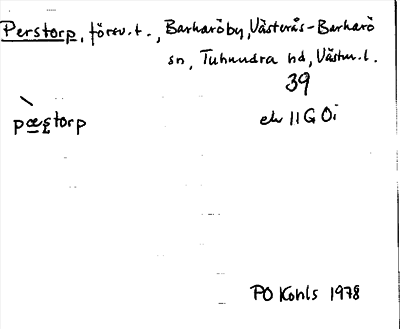 Perstorp, försv. t., Barkaröby, Västerås-Barkarö
sn, Tuhundra hd, Västm. l.
39
pæʂtorp
ek 11G 0i
PO Kohls 1978